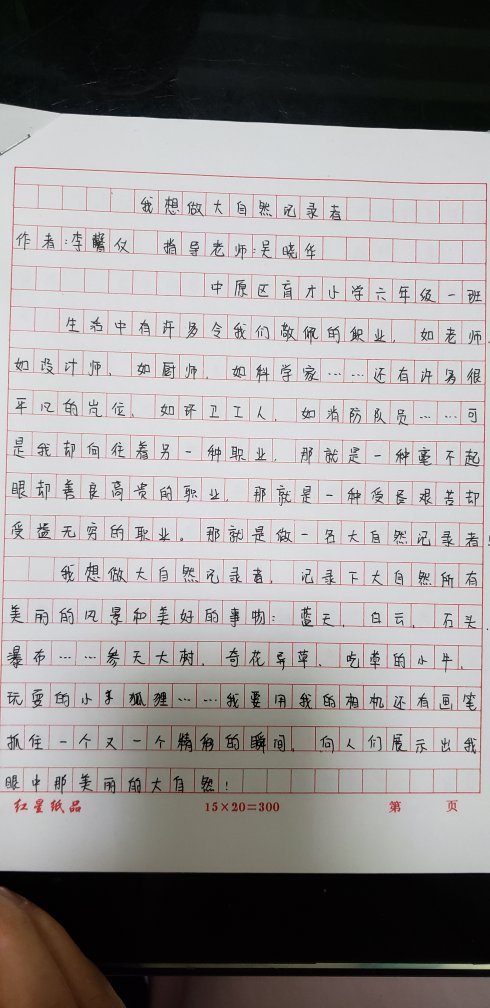 我想做大自然记录者
作者:李馨仪 指导老师:吴晓华
中原区育才小学六年级一班
生活中有许多令我们敬佩的职业，如老师、
如设计师、如厨师、如科学家……还有许多很
平凡的岗位，如环卫工人、如消防队员……可
是我却向往着另一种职业，那就是一种毫不起
眼却善良高贵的职业，那就是一种受尽艰苦却
受益无穷的职业。那就是做一名大自然记录者！
我想做大自然记录者，记录下大自然所有
美丽的风景和美好的事物：蓝天、白云、石头、
瀑布……参天大树、奇花异草、吃草的小牛、
玩耍的小狐狸……我要用我的相机还有画笔
抓住一个又一个精彩的瞬间，向人们展示出我
眼中那美丽的大自然！
红星纸品 15×20=300 第 页